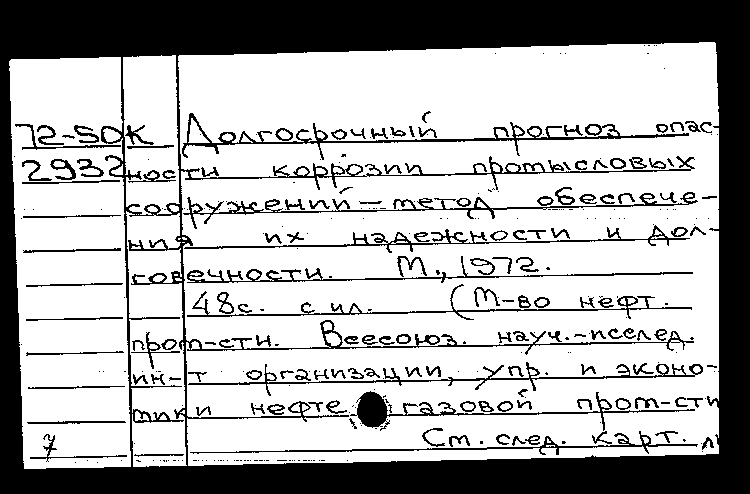 72-50К Долгосрочный прогноз опас-
2932 ности коррозии промысловых
сооружений – метод обеспече-
ния их надежности и дол-
говечности. М., 1972.
48с. с ил. (М-во нефт.
пром-сти. Всесоюз. науч.-исслед.
ин-т организации, упр. и эконо-
мики нефте газовой пром-сти
7 См. след. карт.